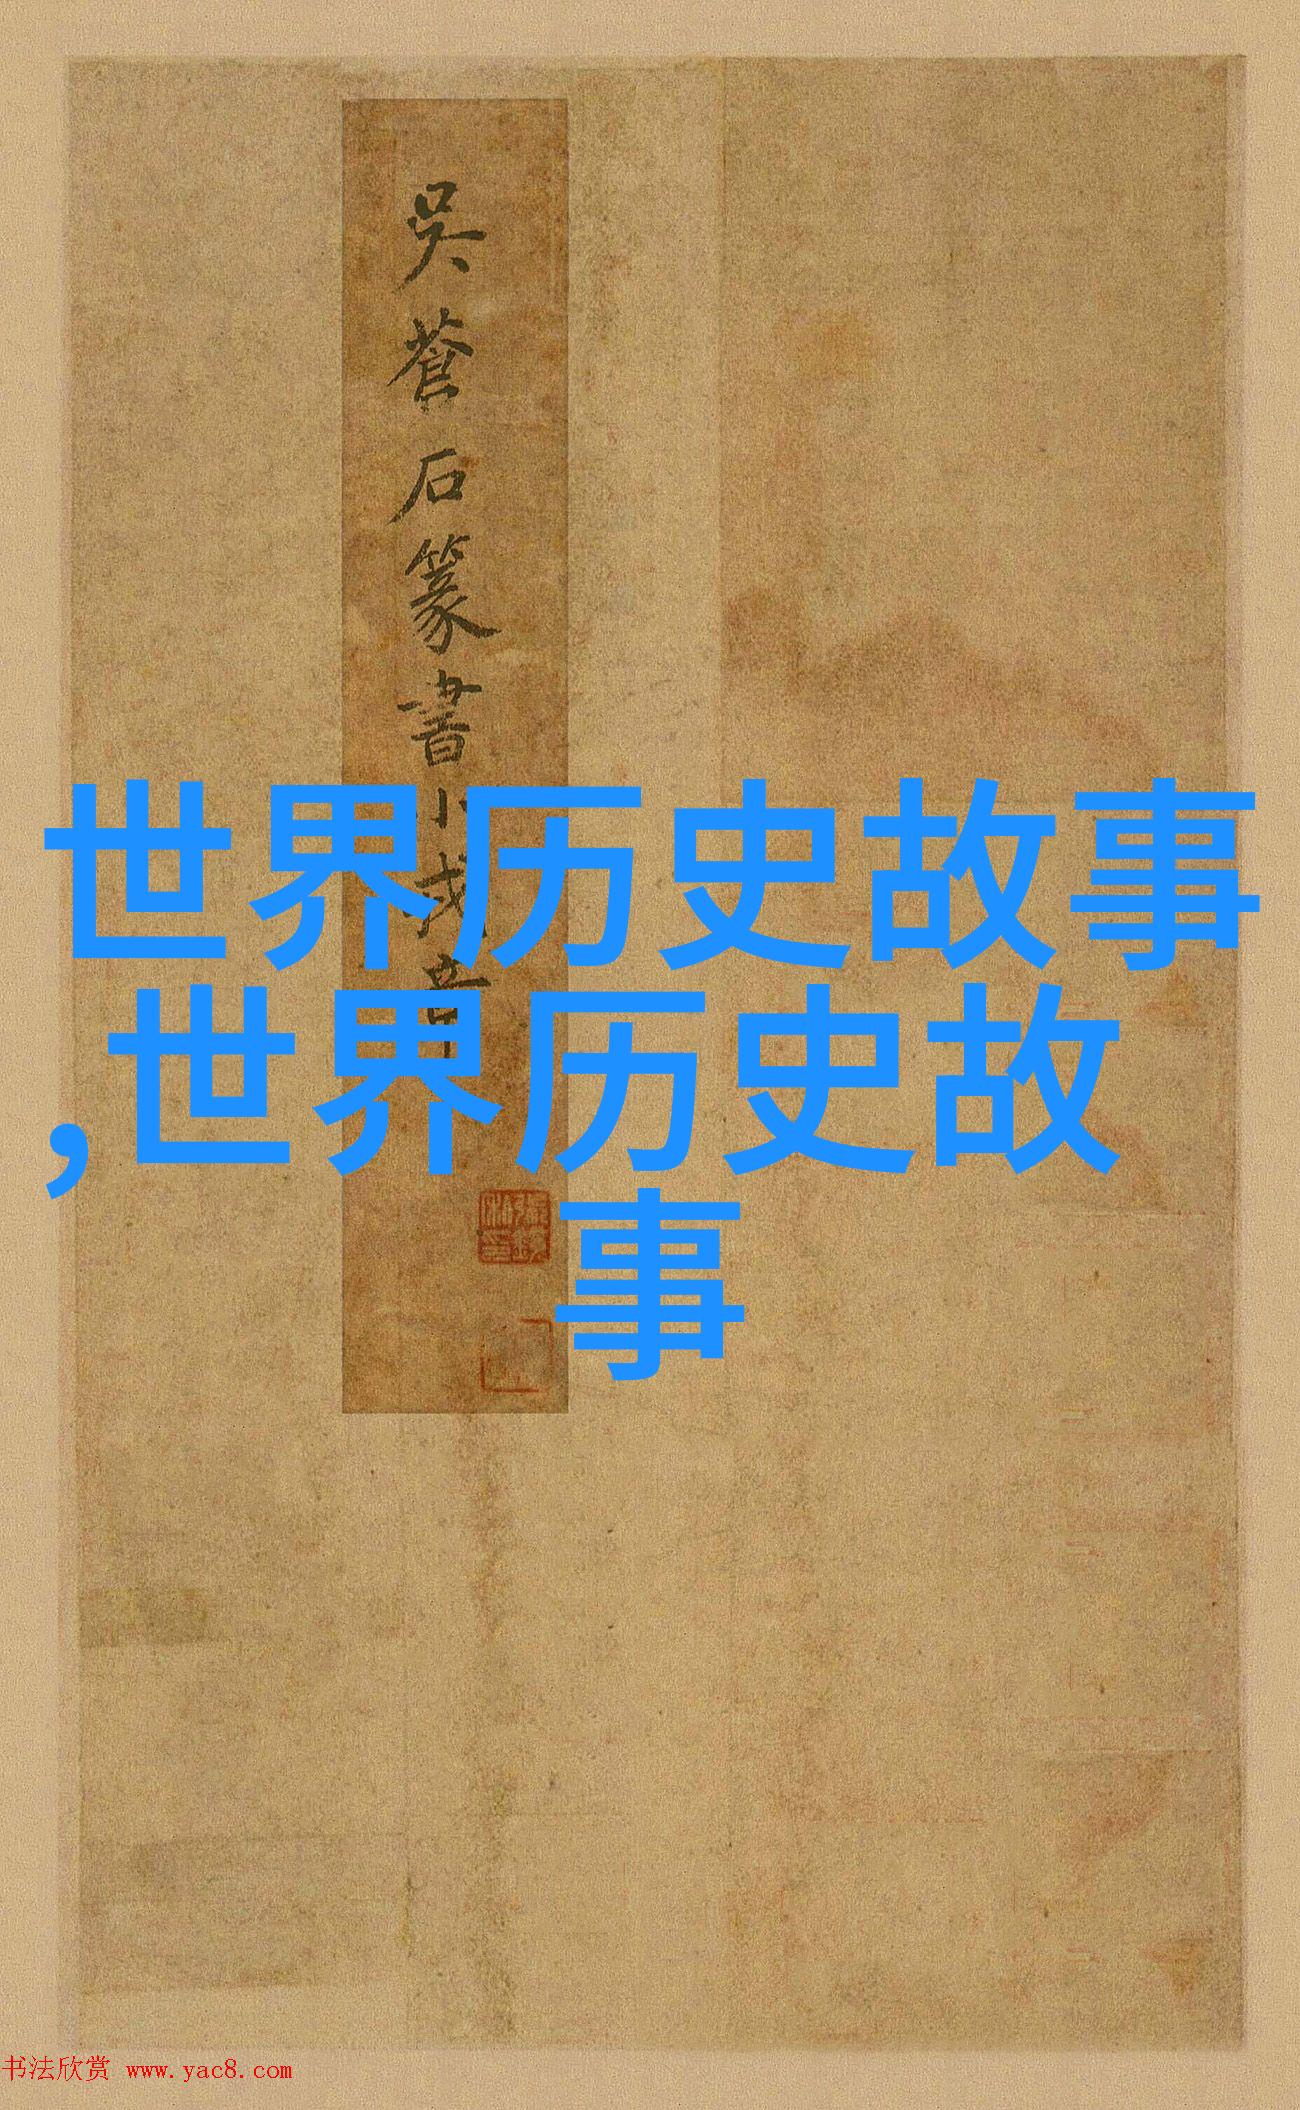 吳蒼石篆書小戎章
世界历史故事
,世界历史故
事
书法欣赏 www.yac8.com